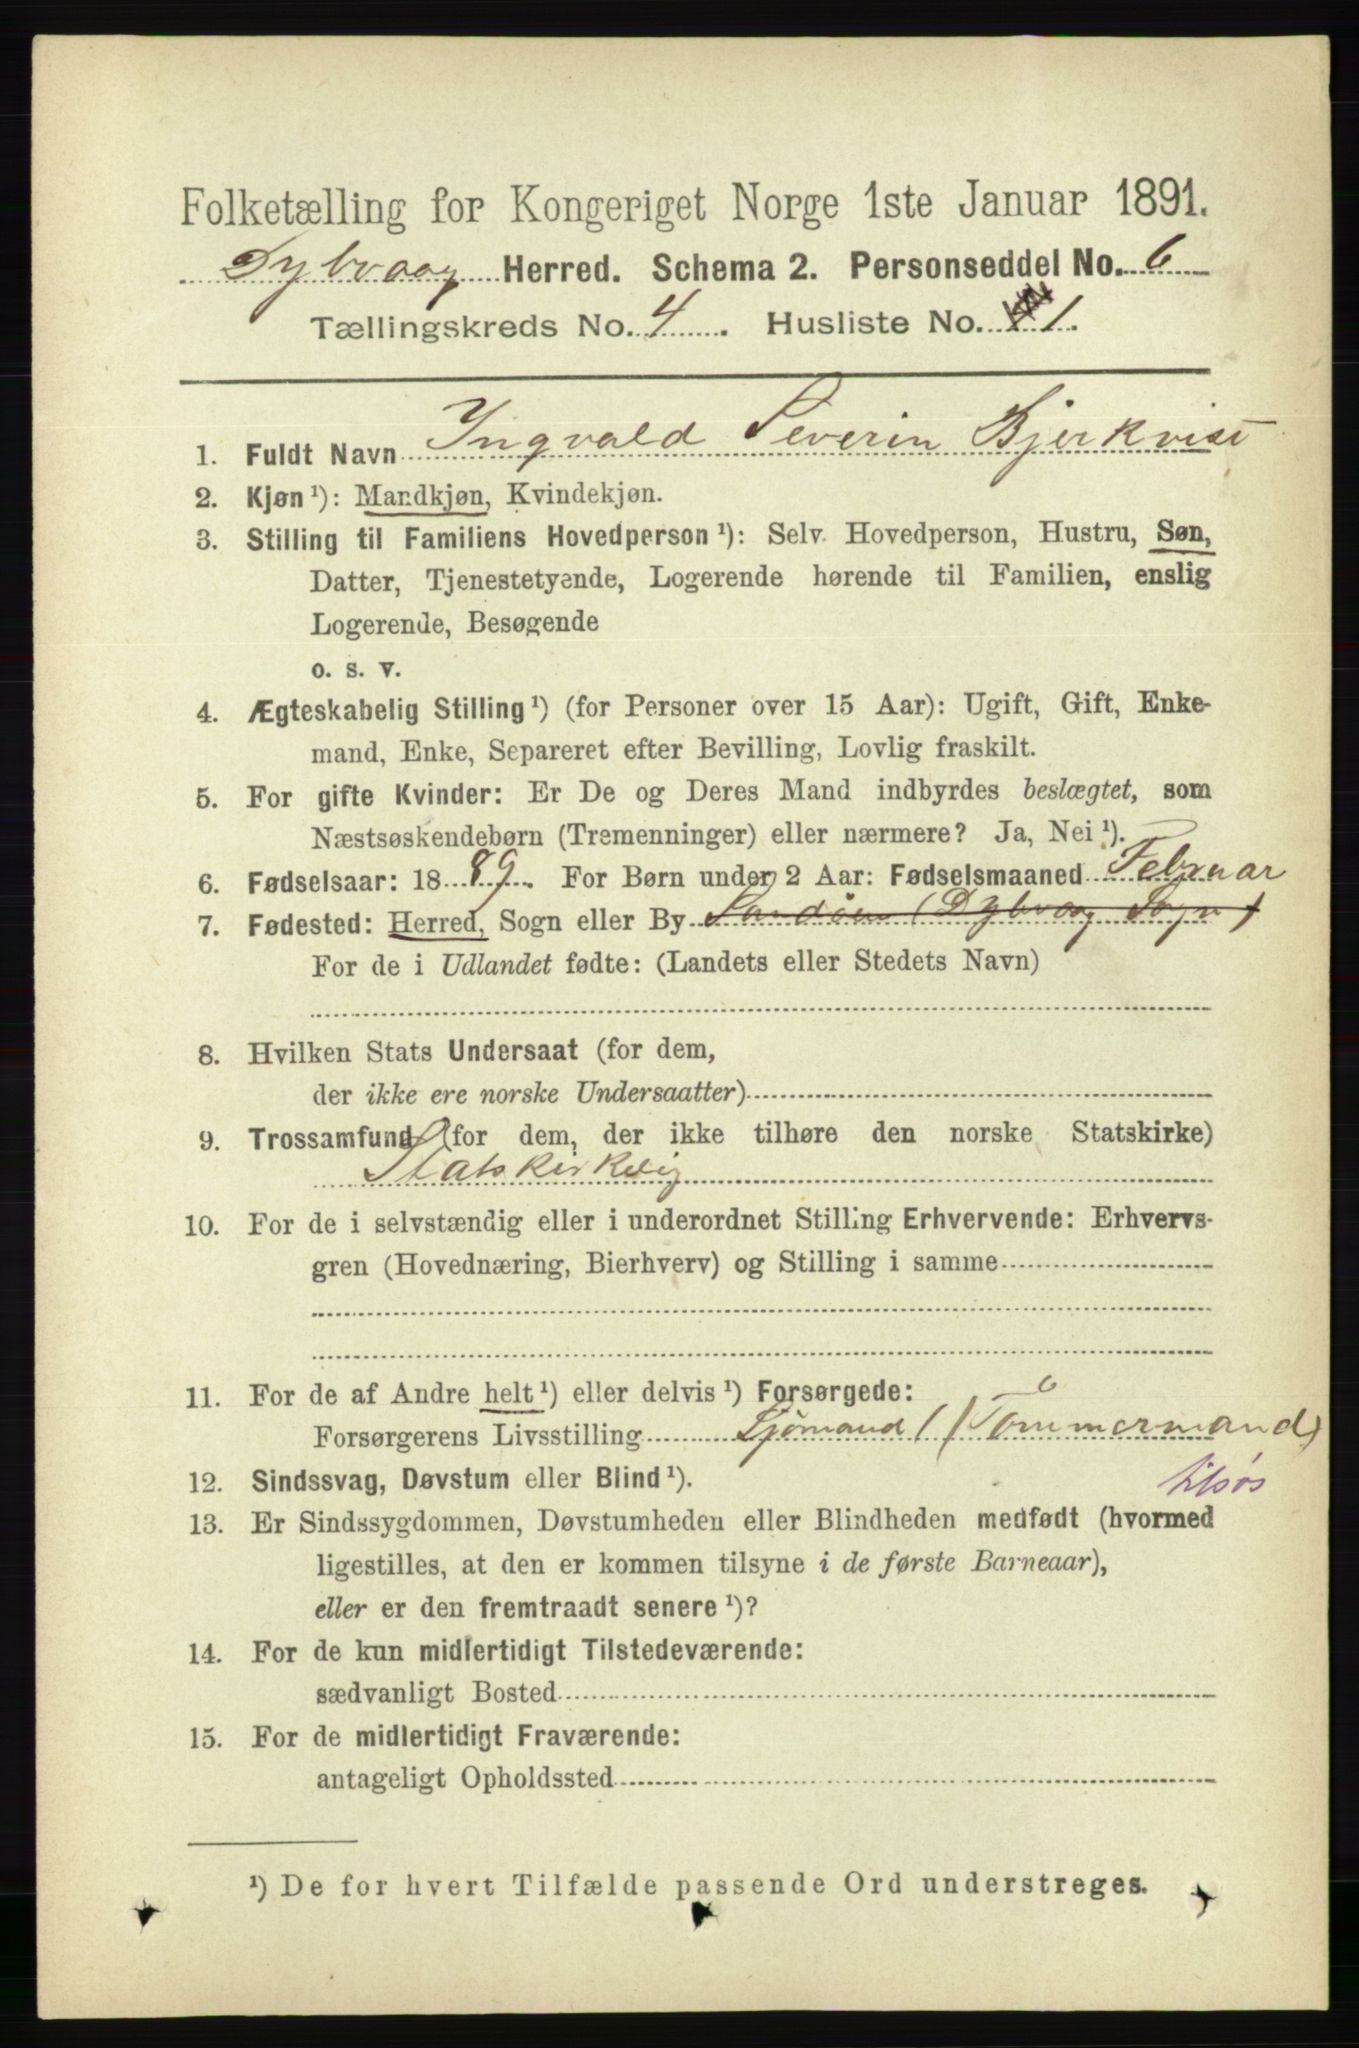 Folketælling for Kongeriget Norge 1ste Januar 1891.
Dybvaag Herred. Schema 2. Personseddel No. 6
Tællingskreds No. 4. Husliste No. 1.
1. Fuldt Navn Ingvald Severin Bjerkvist
2. Kjøn ¹): Mandkjøn, Kvindekjøn.
3. Stilling til Familiens Hovedperson ¹): Selv Hovedperson, Hustru, Søn,
Datter, Tjenestetyende, Logerende hørende til Familien, enslig
Logerende, Besøgende
o. s. v.
4. Ægteskabelig Stilling ¹) (for Personer over 15 Aar): Ugift, Gift, Enke-
mand, Enke, Separeret efter Bevilling, Lovlig fraskilt.
5. For gifte Kvinder: Er De og Deres Mand indbyrdes beslægtet, som
Næstsøskendebørn (Tremenninger) eller nærmere? Ja, Nei ¹).
6. Fødselsaar: 1889. For Børn under 2 Aar: Fødselsmaaned Februar
7. Fødested: Herred, Sogn eller By Sandøen (Dybvaag Sogn)
For de i Udlandet fødte: (Landets eller Stedets Navn)
8. Hvilken Stats Undersaat (for dem,
der ikke ere norske Undersaatter)
9. Trossamfund (for dem, der ikke tilhøre den norske Statskirke)
Statskirkelig
10. For de i selvstændig eller i underordnet Stilling Erhvervende: Erhvervs-
gren (Hovednæring, Bierhverv) og Stilling i samme
11. For de af Andre helt ¹) eller delvis ¹) Forsørgede:
Forsørgerens Livsstilling Sjømand (Tømmermand)
tilsøs
12. Sindssvag, Døvstum eller Blind ¹).
13. Er Sindssygdommen, Døvstumheden eller Blindheden medfødt (hvormed
ligestilles, at den er kommen tilsyne i de første Barneaar),
eller er den fremtraadt senere ¹)?
14. For de kun midlertidigt Tilstedeværende:
sædvanligt Bosted
15. For de midlertidigt Fraværende:
antageligt Opholdssted
¹) De for hvert Tilfælde passende Ord understreges.